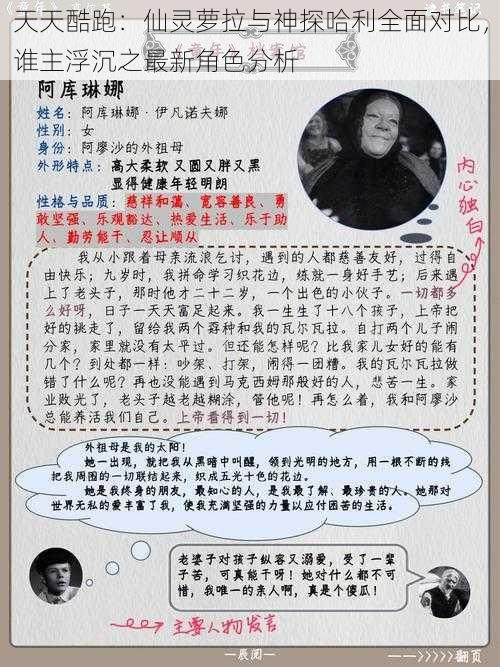 天天酷跑：仙灵萝拉与神探哈利全面对比，
谁主浮沉之最新角色分析
阿库琳娜
姓名：阿库琳娜·伊凡诺夫娜
性别：女
身份：阿廖沙的外祖母
外形特点：高大柔软 又圆又胖又黑
显得健康年轻明朗
性格与品质：慈祥和蔼、宽容善良、勇
敢坚强、乐观豁达、热爱生活、乐于助
人、勤劳能干、忍让顺从
内心独白
我从小跟着母亲流浪乞讨，遇到的人都慈善友好，过得自
由快乐；九岁时，我拼命学习织花边，练就一身好手艺；后来遇
上了老头子，那时他才二十二岁，一个出色的小伙子。一切都多
么好呀，日子一天天富足起来。我一生生了十八个孩子，上帝把
好的挑走了，留给我两个孬种和我的瓦尔瓦拉。自打两个儿子闹
分家，家里就没有太平过。但还能怎样呢？比我家儿女好的能有
几个？到处都一样：吵架、打架，闹得一团糟。我的瓦尔瓦拉做
错了什么呢？再也没能遇到马克西姆那般好的人，悲苦一生。家
业败光了，老头子越老越糊涂，管他呢！再怎么着，我和阿廖沙
总能养活我们自己。上帝看得到一切！
外祖母是我的太阳！
她一出现，就把我从黑暗中叫醒，领到光明的地方，用一根不断的线
把我周围的一切联结起来，织成五光十色的花边。
她是我终身的朋友，最知心的人，是我最了解、最珍贵的人。她那对
世界无私的爱丰富了我，使我充满坚强的力量以应付困苦的生活。
老婆子对孩子纵容又溺爱，受了一辈
子苦，可真能干呀！她对什么都不可
惜，我唯一的亲人啊，真是个傻瓜！
主要人物发言
—展阅—
——>>>>>翻页